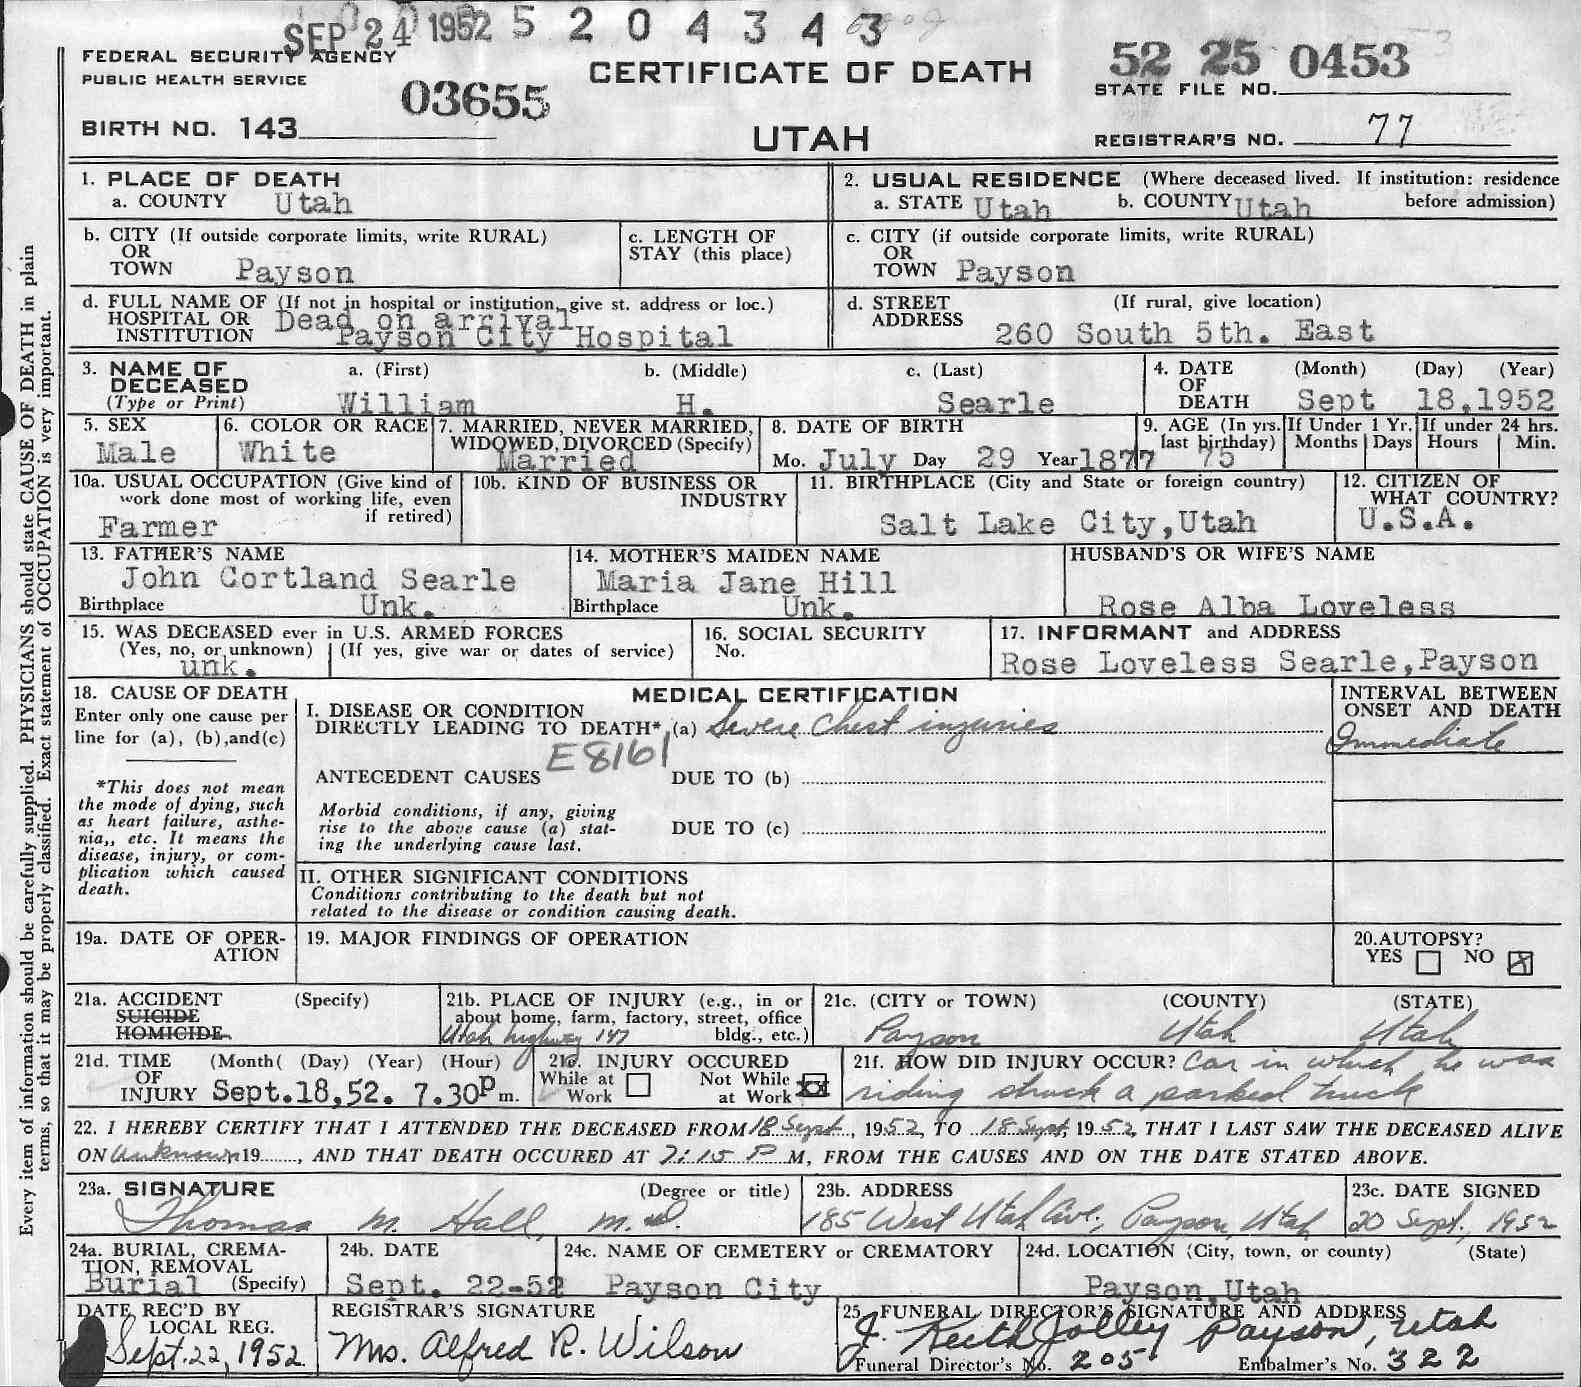 SEP 24 1952 5 2 0 4 3 4 3
FEDERAL SECURITY AGENCY
PUBLIC HEALTH SERVICE
03655
CERTIFICATE OF DEATH
52 25 0453
STATE FILE NO.
BIRTH NO. 143
UTAH
REGISTRAR'S NO. 77
1. PLACE OF DEATH
a. COUNTY Utah
2. USUAL RESIDENCE (Where deceased lived. If institution: residence before admission)
a. STATE Utah b. COUNTY Utah
b. CITY (If outside corporate limits, write RURAL)
OR
TOWN Payson
c. LENGTH OF
STAY (this place)
c. CITY (if outside corporate limits, write RURAL)
OR
TOWN Payson
d. FULL NAME OF (If not in hospital or institution, give st. address or loc.)
HOSPITAL OR Dead on arrival
INSTITUTION Payson City Hospital
d. STREET (If rural, give location)
ADDRESS 260 South 5th. East
3. NAME OF DECEASED
(Type or Print)
a. (First) b. (Middle) c. (Last)
William H. Searle
4. DATE OF DEATH (Month) (Day) (Year)
Sept 18,1952
5. SEX
Male
6. COLOR OR RACE
White
7. MARRIED, NEVER MARRIED,
WIDOWED, DIVORCED (Specify)
Married
8. DATE OF BIRTH
Mo. July Day 29 Year 1877
9. AGE (In yrs. last birthday)
75
If Under 1 Yr. If under 24 hrs.
Months Days Hours Min.
10a. USUAL OCCUPATION (Give kind of
work done most of working life, even
if retired)
Farmer
10b. KIND OF BUSINESS OR
INDUSTRY
11. BIRTHPLACE (City and State or foreign country)
Salt Lake City,Utah
12. CITIZEN OF
WHAT COUNTRY?
U.S.A.
13. FATHER'S NAME
John Cortland Searle
Birthplace Unk.
14. MOTHER'S MAIDEN NAME
Maria Jane Hill
Birthplace Unk.
HUSBAND'S OR WIFE'S NAME
Rose Alba Loveless
15. WAS DECEASED ever in U.S. ARMED FORCES
(Yes, no, or unknown) (If yes, give war or dates of service)
unk.
16. SOCIAL SECURITY
No.
17. INFORMANT and ADDRESS
Rose Loveless Searle,Payson
18. CAUSE OF DEATH
Enter only one cause per
line for (a), (b),and(c)
*This does not mean
the mode of dying, such
as heart failure, asthe-
nia,, etc. It means the
disease, injury, or com-
plication which caused
death.
MEDICAL CERTIFICATION
I. DISEASE OR CONDITION
DIRECTLY LEADING TO DEATH* (a) Severe Chest injuries
E8161
ANTECEDENT CAUSES DUE TO (b)
Morbid conditions, if any, giving
rise to the above cause (a) stat-
ing the underlying cause last.
DUE TO (c)
INTERVAL BETWEEN
ONSET AND DEATH
Immediate
II. OTHER SIGNIFICANT CONDITIONS
Conditions contributing to the death but not
related to the disease or condition causing death.
19a. DATE OF OPER-
ATION
19. MAJOR FINDINGS OF OPERATION
20.AUTOPSY?
YES NO X
21a. ACCIDENT (Specify)
SUICIDE
HOMICIDE
21b. PLACE OF INJURY (e.g., in or
about home, farm, factory, street, office
bldg., etc.)
Utah highway 147
21c. (CITY or TOWN) (COUNTY) (STATE)
Payson Utah Utah
21d. TIME (Month( (Day) (Year) (Hour)
OF
INJURY Sept.18,52. 7.30P m.
21e. INJURY OCCURED
While at Work
Not While at Work XX
21f. HOW DID INJURY OCCUR? Car in which he was
riding struck a parked truck
22. I HEREBY CERTIFY THAT I ATTENDED THE DECEASED FROM 18 Sept, 1952, TO 18 Sept, 1952, THAT I LAST SAW THE DECEASED ALIVE
ON Unknown 19......, AND THAT DEATH OCCURED AT 7:15 P M, FROM THE CAUSES AND ON THE DATE STATED ABOVE.
23a. SIGNATURE (Degree or title)
Thomas M. Hall, M.D.
23b. ADDRESS
185 West Utah Ave, Payson, Utah
23c. DATE SIGNED
20 Sept, 1952
24a. BURIAL, CREMA-
TION, REMOVAL
Burial (Specify)
24b. DATE
Sept. 22-52
24c. NAME OF CEMETERY or CREMATORY
Payson City
24d. LOCATION (City, town, or county) (State)
Payson,Utah
DATE REC'D BY
LOCAL REG.
Sept.22,1952
REGISTRAR'S SIGNATURE
Mrs. Alfred R. Wilson
25. FUNERAL DIRECTOR'S SIGNATURE AND ADDRESS
J. Keith Jolley Payson, Utah
Funeral Director's No. 205 Embalmer's No. 322
Every item of information should be carefully supplied. PHYSICIANS should state CAUSE OF DEATH in plain
terms, so that it may be properly classified. Exact statement of OCCUPATION is very important.